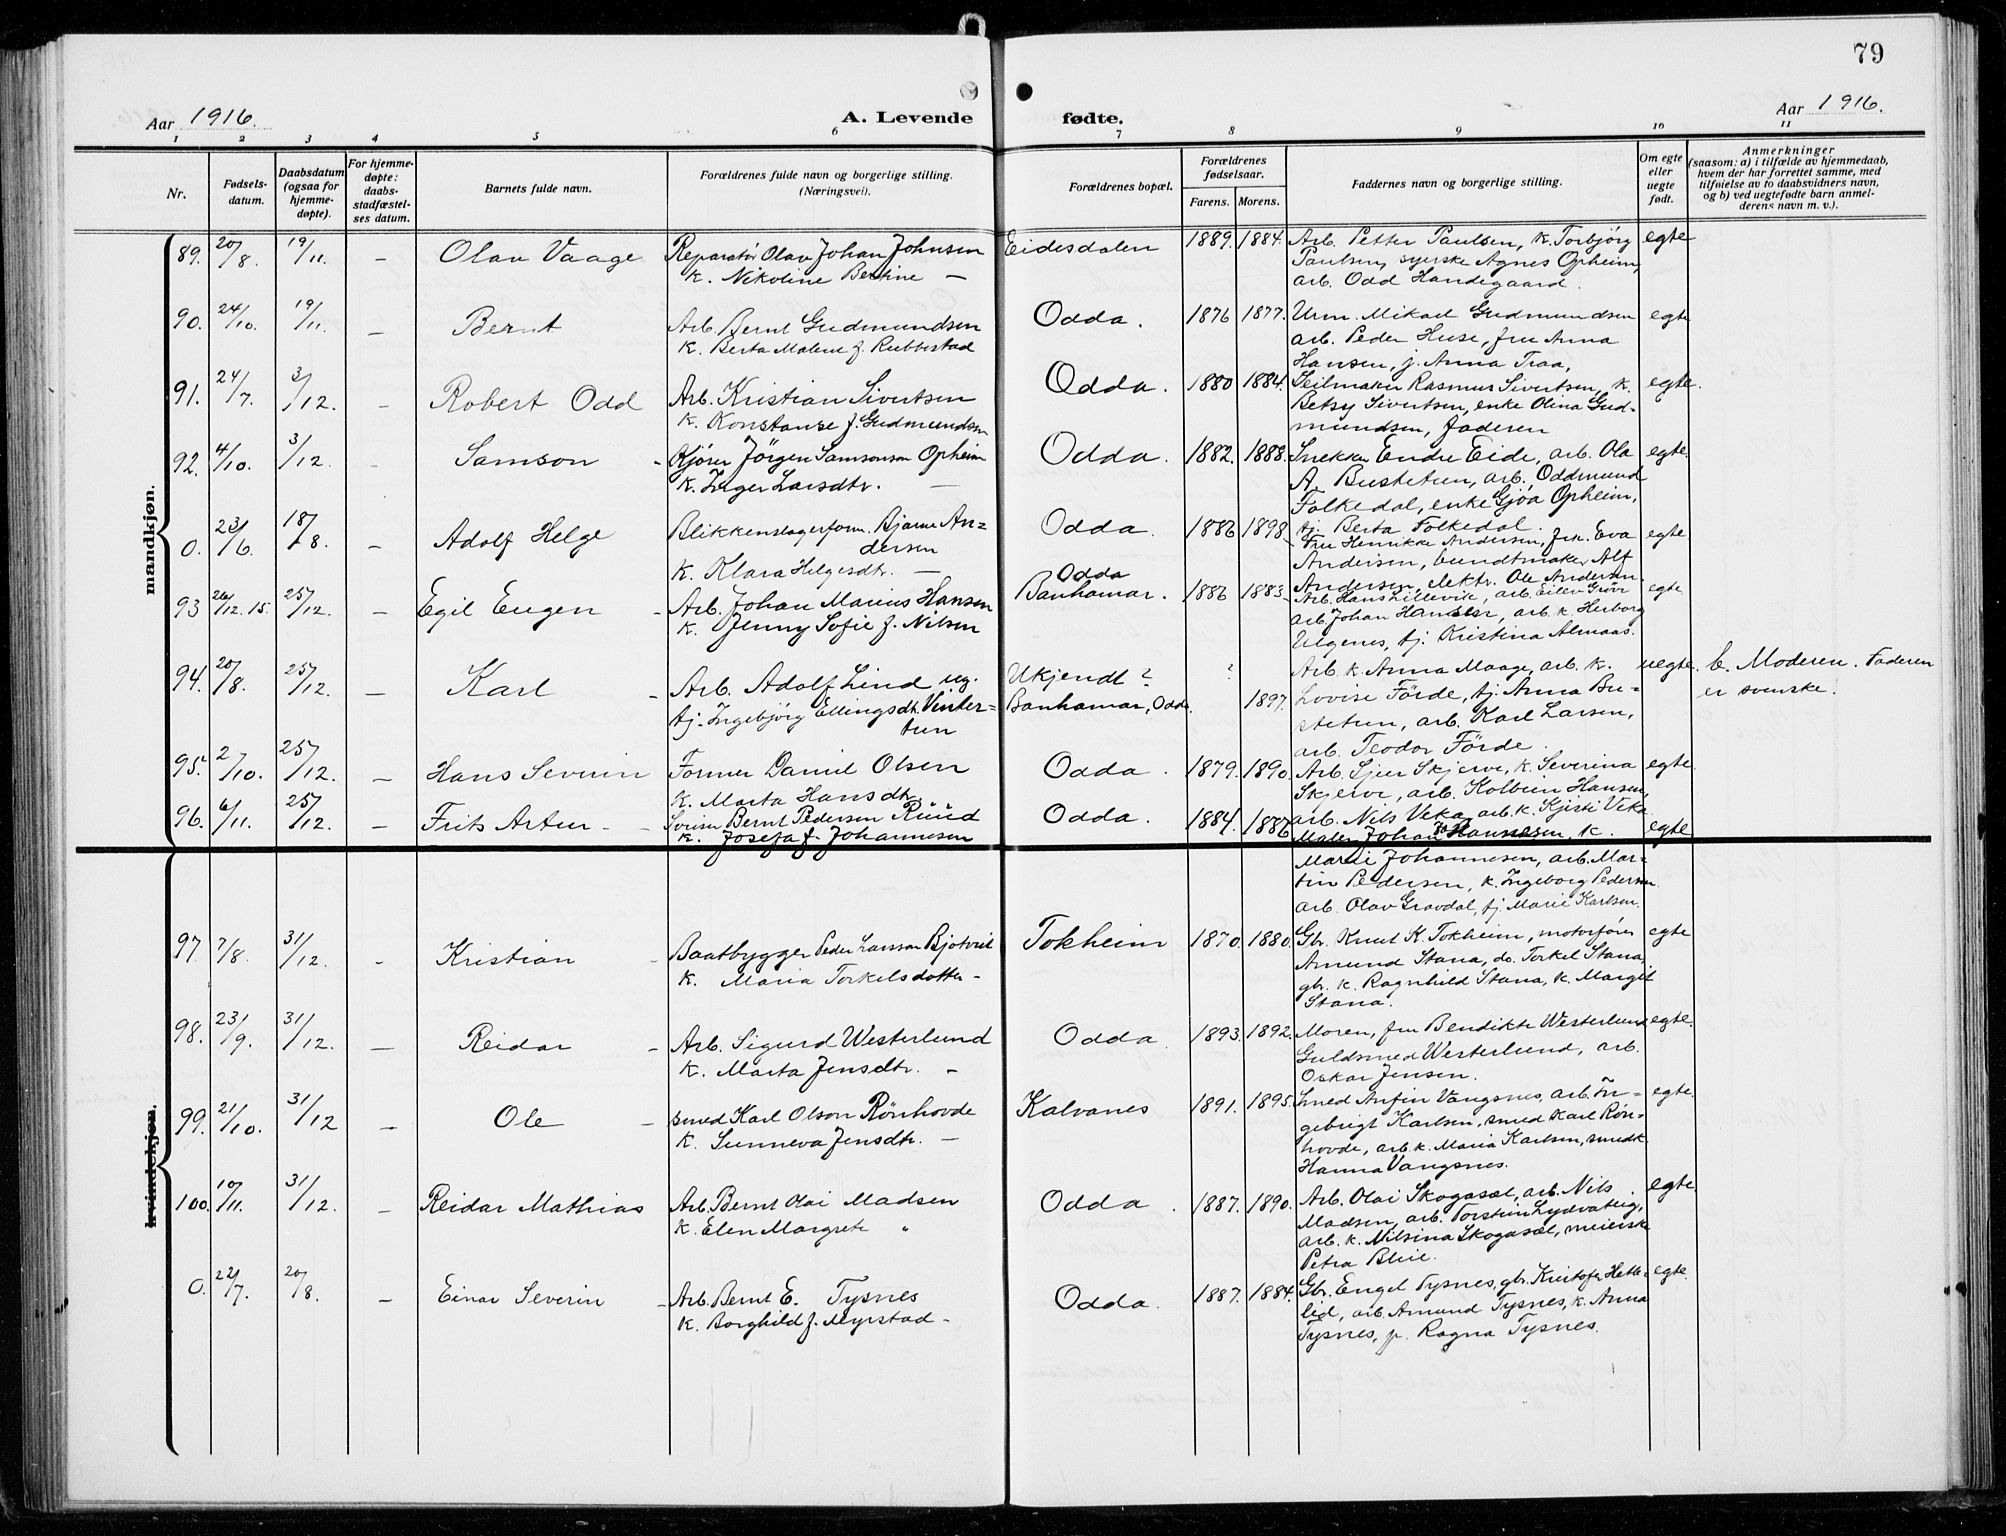 79
Aar 1916.
A. Levende fødte.
Aar 1916.
1 2 3 4 5 6 7 8 9 10 11
Nr.
Fødsels-
datum.
Daabsdatum
(ogsaa for
hjemme-
døpte).
For hjemme-
døpte:
daabs-
stadfæstel-
ses datum.
Barnets fulde navn.
Forældrenes fulde navn og borgerlige stilling.
(Næringsvei).
Forældrenes bopæl.
Forældrenes
fødselsaar.
Farens. Morens.
Faddernes navn og borgerlige stilling.
Om egte
eller
uegte
født.
Anmerkninger
(saasom: a) i tilfælde av hjemmedaab,
hvem der har forrettet samme, med
tilføielse av to daabsvidners navn,
og b) ved uegtefødte barn anmel-
derens navn m. v.).
mandkjøn.
89. 20/8. 19/11. – Olav Vaage
Reparatør Olav Johan Johnsen
K. Nikoline Bertine –
Eidesdalen 1889. 1884.
Arb. Petter Paulsen, K. Torbjörg
Paulsen, syerske Agnes Opheim,
arb. Odd Handegaard.
egte
90. 24/10. 19/11. – Bernt
Arb. Bernt Gudmundsen
K. Berta Malene f. Rubbestad
Odda. 1876 1877.
Urm. Mikael Gudmundsen
arb. Peder Huse, fru Anna
Hansen, j. Anna Traa,
egte
91. 24/7. 3/12. – Robert Odd
Arb. Kristian Sivertsen
K. Konstanse f. Gudmundsen
Odda. 1880 1884.
Seilmaker Rasmus Sivertsen, K.
Betsy Sivertsen, enke Olina Gud-
mundsen, faderen
egte.
92. 4/10. 3/12. – Samson
Kjörer Jörgen Samsonson Opheim
K. Inger Larsdtr. –
Odda. 1882. 1888.
Snekker Endre Eide, arb. Ola
A. Bustetun, arb. Oddmund
Folkedal, enke Gjöa Opheim,
tj. Berta Folkedal.
egte.
0. 23/6. 18/8. – Adolf Helge
Blikkenslagerform. Bjarne An-
dersen
K. Klara Helgesdtr. –
Odda. 1886 1898
Fru Henrikke Andersen, frk. Eva
Andersen, bundtmaker Alf
Andersen, elektr. Ole Andersen.
egte
93 26/12. 15. 25/12. – Egil Eugen –
Arb. Johan Marius Hansen
K. Jenny Sofie f. Nilsen
Odda
Banhamar. 1886 1883.
Arb. Hans Lillevik, arb. Eilev Grör
arb. Johan Hansen, arb. K. Herborg
Ulgenes, tj. Kristina Almaas.
egte.
94. 20/8. 25/12. – Karl –
Arb. Adolf Lind ug.
tj. Ingebjörg Ellingsdtr. Vinter-
tun
Ukjendt ? ?
Banhamar, Odda. 1897.
Arb. K. Anna Maage, arb. K.
Lovise Förde, tj. Anna Bu-
stetun, arb. Karl Larsen,
arb. Teodor Förde.
uegte. b. Moderen. Faderen
er svenske.
95. 2/10. 25/12. – Hans Severin
Former Daniel Olsen
K. Marta Hansdtr.
Odda. 1879. 1890.
Arb. Sjur Skjerve, K. Severina
Skjerve, arb. Kolbein Hansen,
arb. Nils Veka, arb. K. Kjisti Veka
egte.
96. 6/11. 25/12. – Frits Artur –
Bernt Pedersen Ruud
K. Josefa f. Johannesen
Odda. 1884. 1886
Maler Johan Johannesen, K.
Marie Johannesen, arb. Mar-
tin Pedersen, K. Ingeborg Pedersen.
arb. Olav Gravdal, tj. Marie Karlsen.
egte
kvindekjøn.
97. 7/8. 31/12. – Kristian –
Baatbygger Peder Larsson Bjotveit
K. Maria Torkelsdotter –
Tokheim 1870. 1880.
Gbr. Knut K. Tokheim, motorförer
Amund Stana, do. Torkel Stana,
gbr. K. Ragnhild Stana, K. Margit
Stana.
egte
98. 23/9. 31/12. – Reidar –
Arb. Sigurd Westerlund
K. Marta Jensdtr. –
Odda. 1893. 1892.
Moren, fru Bendikte Westerlund
Guldsmed Westerlund, arb.
Oskar Jensen.
egte.
99. 21/10. 31/12 – Ole –
Smed Karl Olson Rönhovde
K. Sunneva Jensdtr. –
Kalvanes 1891. 1895.
Smed Anfin Vangsnes, arb. In-
gebrigt Karlsen, smed Karl Rön-
hovde, arb. K. Maria Karlsen, smedk.
Hanna Vangsnes.
egte.
100. 10/11. 31/12. – Reidar Mathias
Arb. Bernt Olai Madsen
K. Elen Margrete "
Odda. 1887. 1890.
Arb. Olai Skogasæl, arb. Nils
Madsen, arb. Torstein Lydvateig,
arb. K. Nilsina Skogasæl, meierske
Petra Bleie.
egte.
0. 22/7. 20/8. – Einar Severin –
Arb. Bernt E. Tysnes
K. Borghild f. Myrstad –
Odda. 1887. 1884.
Gbr. Engel Tysnes, gbr. Kristofer Hette-
lid, arb. Amund Tysnes, K. Anna
Tysnes, p. Ragna Tysnes.
egte.